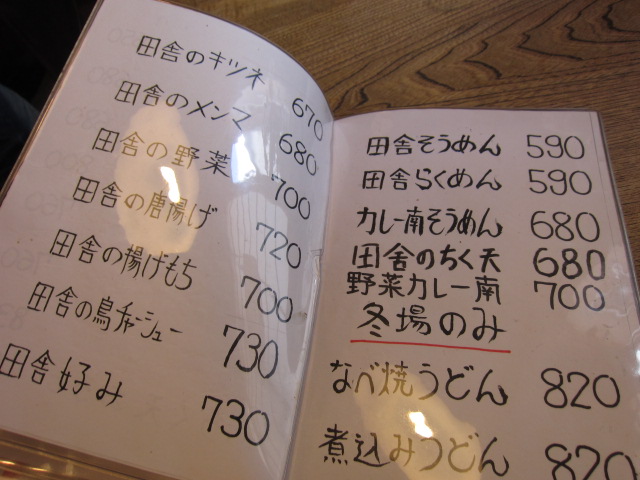 田舎のキツネ 670
田舎のメンマ 680
田舎の野菜 700
田舎の唐揚げ 720
田舎の揚げもち 700
田舎の鳥チャーシュー 730
田舎好み 730
田舎そうめん 590
田舎らくめん 590
カレー南そうめん 680
田舎のちく天 680
野菜カレー南 700
冬場のみ
なべ焼うどん 820
煮込みうどん 820